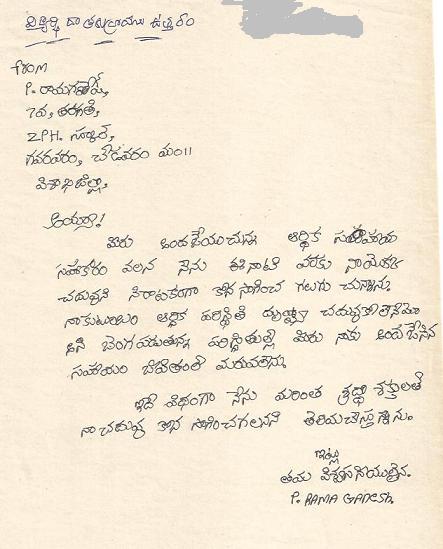 విద్యార్థి దాతలకు వ్రాయు ఉత్తరం
From
P. రామగణేష్,
7వ, తరగతి,
Z.P.H. స్కూల్,
గవరవరం, చోడవరం మం||
విశాఖజిల్లా,
అయ్యా!
మీరు అందజేయుచున్న ఆర్థిక సహాయ
సహకారం వలన నేను ఈనాటి వరకు నాయొక్క
చదువుని నిరాటకంగా కొన సాగించ గలుగు చున్నాను
నాకుటుంబం ఆర్థిక పరిస్థితి దృష్ట్యా చదువుకోలేనేమో
అని బెంగపడుతున్న పరిస్థితుల్లో మీరు నాకు అందజేసిన
సహాయం జీవితంలో మరువలేను
ఇదే విధంగా నేను మరింత శ్రద్ధా శక్తులతో
నా చదువు కొన సాగించగలనని తెలియచేస్తున్నాను.
ఇట్లు
తమ విశ్వసనీయులైన.
P. RAMA GANESH.